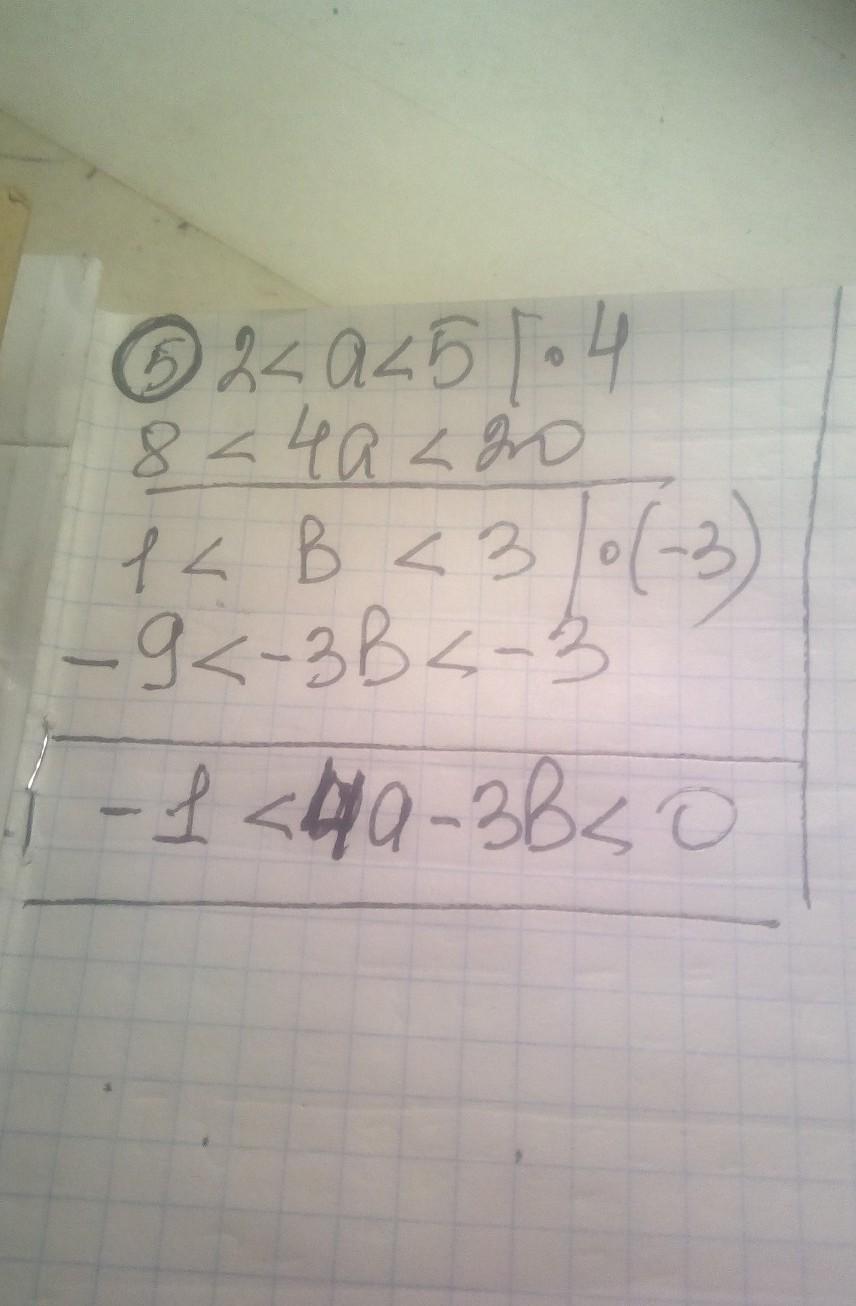 ⑤ 2 < a < 5 | • 4
8 < 4a < 20
1 < B < 3 | • (-3)
- 9 < - 3B < - 3
- 1 < 4a - 3B < 0